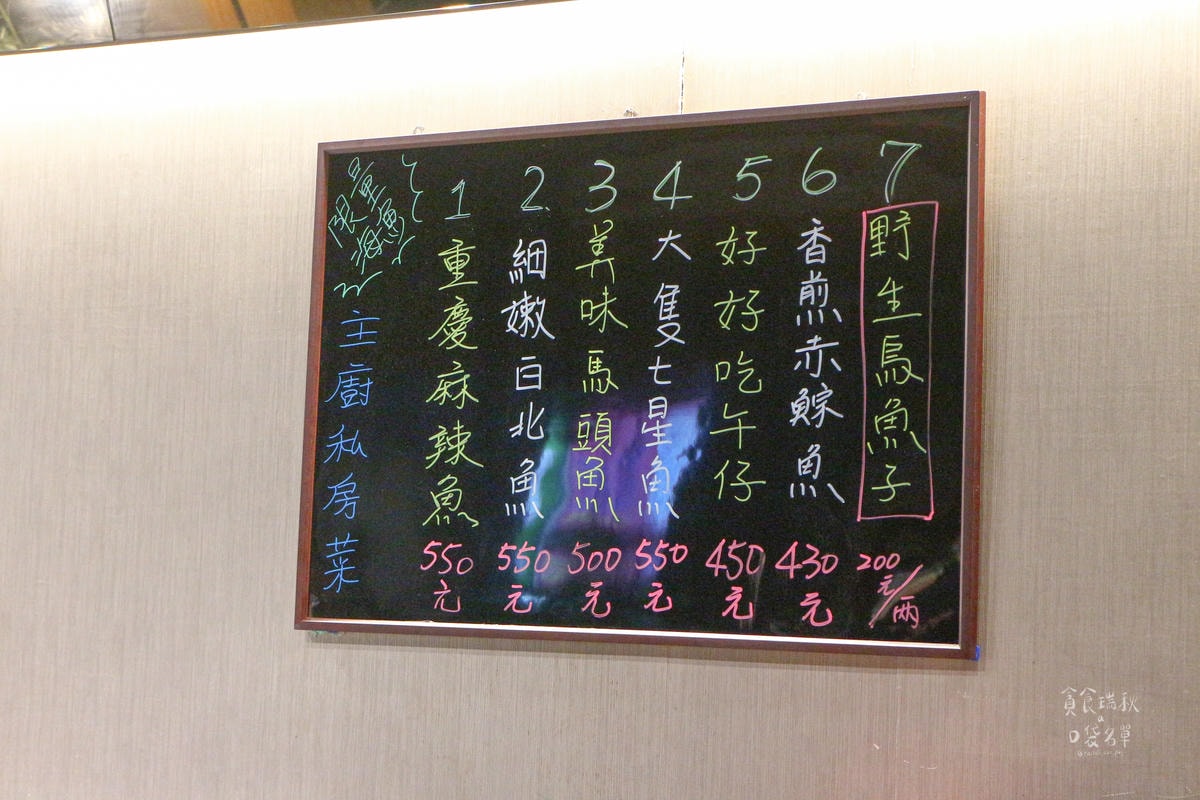 限量海魚
主廚私房菜
1 重慶麻辣魚 550元
2 細嫩白北魚 550元
3 美味馬頭魚 500元
4 大隻七星魚 550元
5 好好吃午仔 450元
6 香煎赤鯮魚 430元
7 野生烏魚子 200元/兩
貪食瑞秋
a
口袋名單